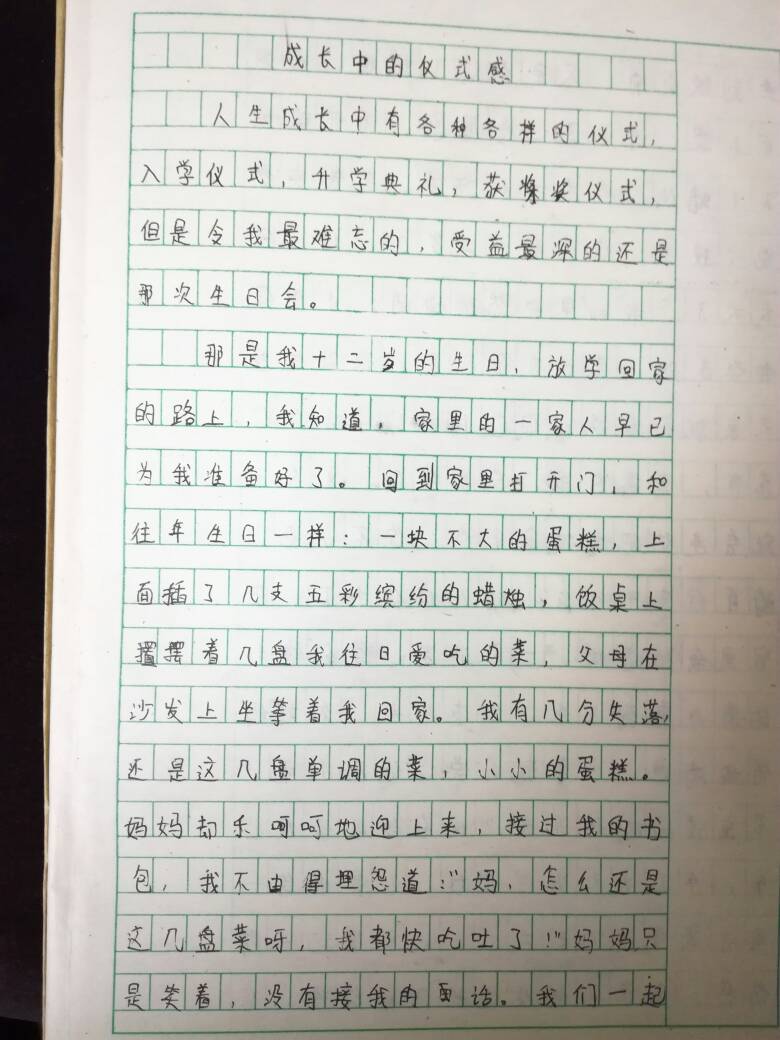 成长中的仪式感
人生成长中有各种各样的仪式，
入学仪式，升学典礼，获奖仪式，
但是令我最难忘的，受益最深的还是
那次生日会。
那是我十二岁的生日，放学回家
的路上，我知道，家里的一家人早已
为我准备好了。回到家里打开门，和
往年生日一样：一块不大的蛋糕，上
面插了几支五彩缤纷的蜡烛，饭桌上
摆着几盘我往日爱吃的菜，父母在
沙发上坐等着我回家。我有几分失落，
还是这几盘单调的菜，小小的蛋糕。
妈妈却乐呵呵地迎上来，接过我的书
包，我不由得埋怨道："妈，怎么还是
这几盘菜呀，我都快吃吐了！"妈妈只
是笑着，没有接我的话。我们一起